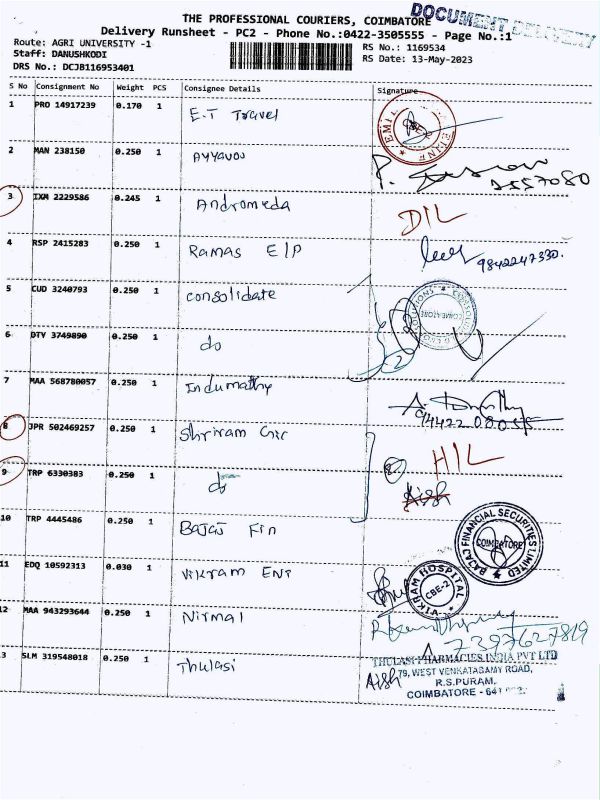 THE PROFESSIONAL COURIERS, COIMBATORE
DOCUMENT DELIVERY
Delivery Runsheet - PC2 - Phone No.:0422-3505555 - Page No.:1
Route: AGRI UNIVERSITY -1
RS No.: 1169534
Staff: DANUSHKODI
RS Date: 13-May-2023
DRS No.: DCJB116953401
S No Consignment No Weight PCS Consignee Details Signature
1 PRO 14917239 0.170 1 E.T Travel
CBE-2
2 MAN 238150 0.250 1 Ayyavoo
3 IXM 2229586 0.245 1 Andromeda DIL
4 RSP 2415283 0.250 1 Ramas E/P 9842247330.
5 CUD 3240793 0.250 1 consolidate
COIMBATORE
6 DTY 3749890 0.250 1 do
7 MAA 568780057 0.250 1 Indumathy
8 JPR 502469257 0.250 1 Shriram Cir HIL
9 TRP 6330383 0.250 1 do
10 TRP 4445486 0.250 1 Bajaj Fin
BAJAJ FINANCIAL SECURITIES LIMITED
COIMBATORE
11 EDQ 10592313 0.030 1 Vikram Ent
VIKRAM HOSPITAL
CBE-2
12 MAA 943293644 0.250 1 Nirmal
7397627819
13 SLM 319548018 0.250 1 Thulasi
THULASI PHARMACIES INDIA PVT LTD
79, WEST VENKATASAMY ROAD,
R.S.PURAM,
COIMBATORE - 641 002.